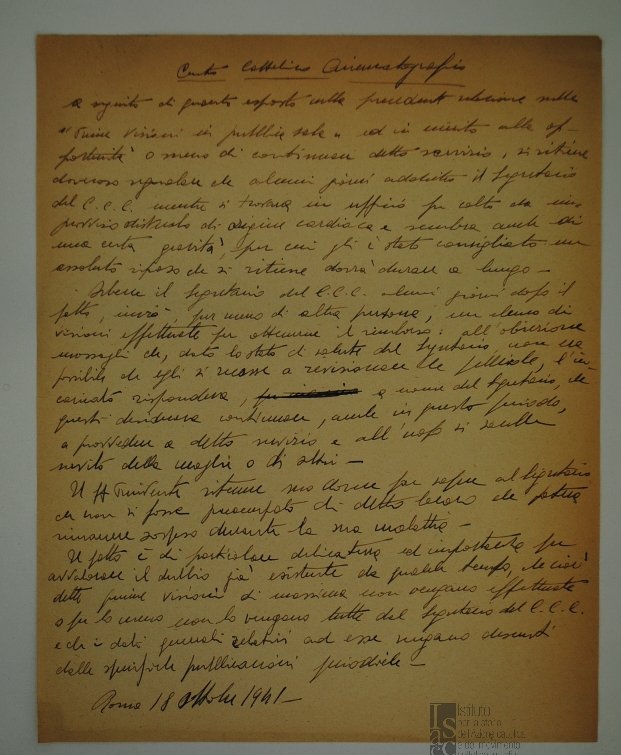 Centro Cattolico Cinematografico
a seguito di quanto esposto nella precedente relazione sulle
"Prime Visioni in pubblica sala" ed in merito alla op-
portunità o meno di continuare detto servizio, si ritiene
doveroso segnalare che alcuni giorni addietro il Segretario
del C.C.C. mentre si trovava in ufficio fu colto da im-
provviso disturbo di origine cardiaca e sembra anche di
una certa gravità, per cui gli è stato consigliato un
assoluto riposo che si ritiene dovrà durare a lungo -
Sebbene il Segretario del C.C.C. alcuni giorni dopo il
fatto, inviò, per mezzo di altra persona, un elenco di
visioni effettuate per ottenerne il rimborso: all'obiezione
mossagli che, dato lo stato di salute del Segretario, non era
possibile che egli si recasse a revisionare le pellicole, l'in-
caricato rispondeva, a nome del Segretario, che
questi desiderava continuare, anche in questo periodo,
a provvedere a detto servizio e all'uopo si sarebbe
servito della moglie o di altri -
Il ritenne suo dovere far sapere al Segretario
che non si fosse preoccupato di detto lavoro che poteva
rimanere sospeso durante la sua malattia -
Il fatto è di particolare delicatezza ed importanza per
avvalorare il dubbio già esistente da qualche tempo, che cioè
dette prime visioni di massima non vengano effettuate
o per lo meno non lo vengano tutte dal Segretario del C.C.C.
e che i dati generali relativi ad esse vengano desunti
dalle pubblicazioni periodiche -
Roma 18 ottobre 1941 -
Istituto
per la storia
dell'Azione cattolica
e del movimento